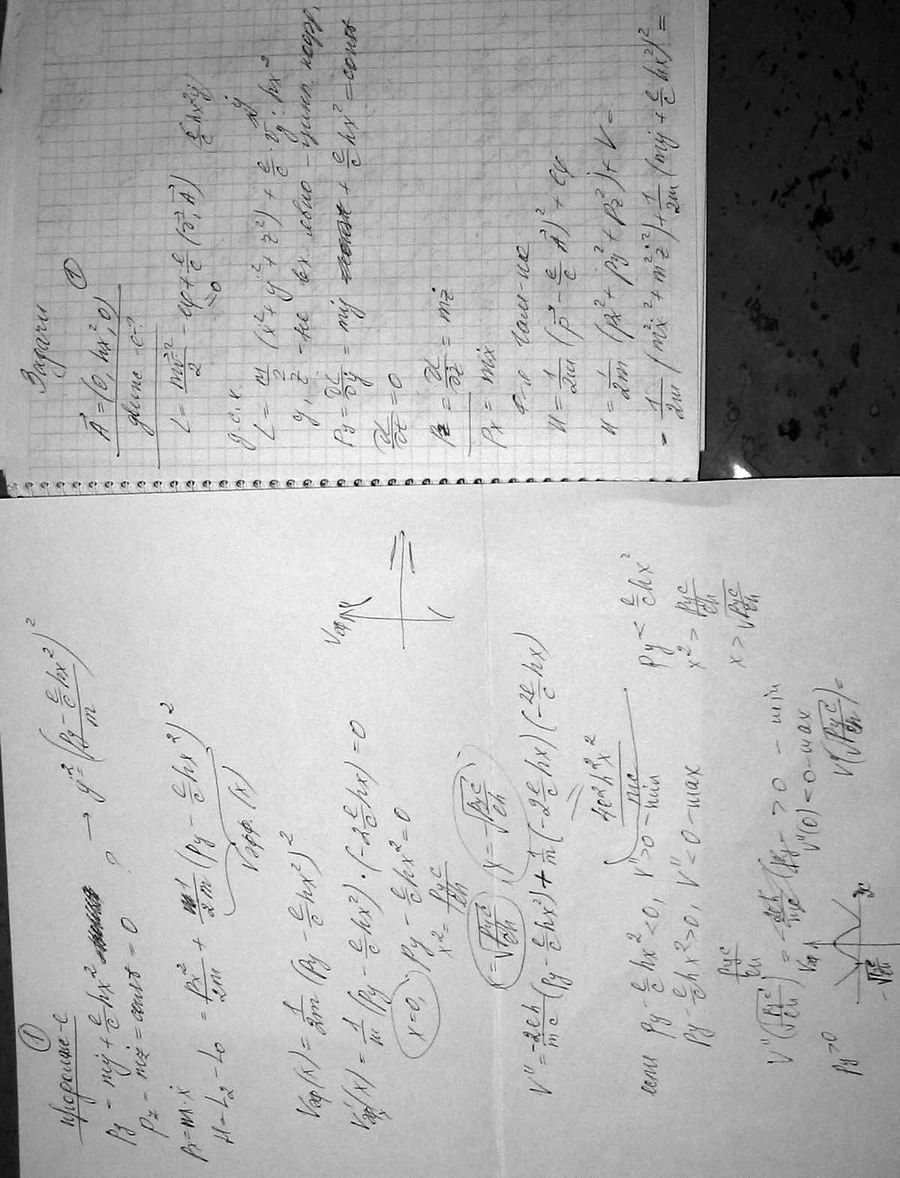 Задачи
①
A⃗ = (0, hx², 0)
движ-е - ?
L = mv⃗²/2 - eφ + e/c (v⃗, A⃗)
=0
e/c hx²ẏ
L = m/2 (ẋ² + ẏ² + ż²) + e/c · ẏ · hx²
y, z - не вх. явно - цикл. коорд.
Py = ∂L/∂ẏ = mẏ + e/c hx² = const
∂L/∂t = 0
Pz = ∂L/∂ż = mż
Px = mẋ
H = 1/2m (p⃗ - e/c A⃗)² + eφ
H = 1/2m (Px² + Py² + Pz²) + V =
= 1/2m (m²ẋ² + m²ż²) + 1/2m (mẏ + e/c hx²)² =
①
продолже-е
Py = mẏ + e/c hx² → ẏ² = (Py - e/c hx² / m)²
Pz = mż = const = 0
Px = m·ẋ
H = L2 - L0 = Px²/2m + 1/2m (Py - e/c hx²)²
Vэфф.(x)
Vэф(x) = 1/2m (Py - e/c hx²)²
Vэф
V'эф(x) = 1/m (Py - e/c hx²)·(-2 e/c hx) = 0
x=0, Py - e/c hx² = 0
x² = Pyc/eh
x = √Pyc/eh, x = -√Pyc/eh
V'' = -2eh/mc (Py - e/c hx²) + 1/m (-2 e/c hx)(-2e/c hx)
4e²h²x²
если Py - e/c hx² < 0, V'' > 0 - min
Py - e/c hx² > 0, V'' < 0 - max
Py < e/c hx²
x² > Pyc/eh
x > √Pyc/eh
Pyc/eh
V''(0) < 0 - max
Py > 0
Vэф
x
V(√Pyc/eh) =